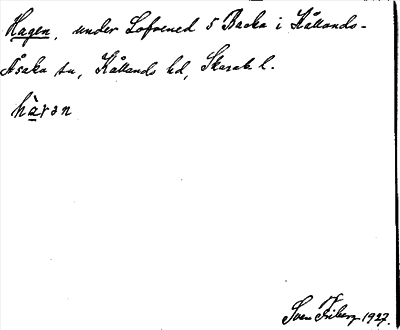 Hagen, under Lofvened 5 Backa i Kållands-
Åsaka sn, Kållands hd, Skarab. l.
hàгən
Sven Friberg 1927.